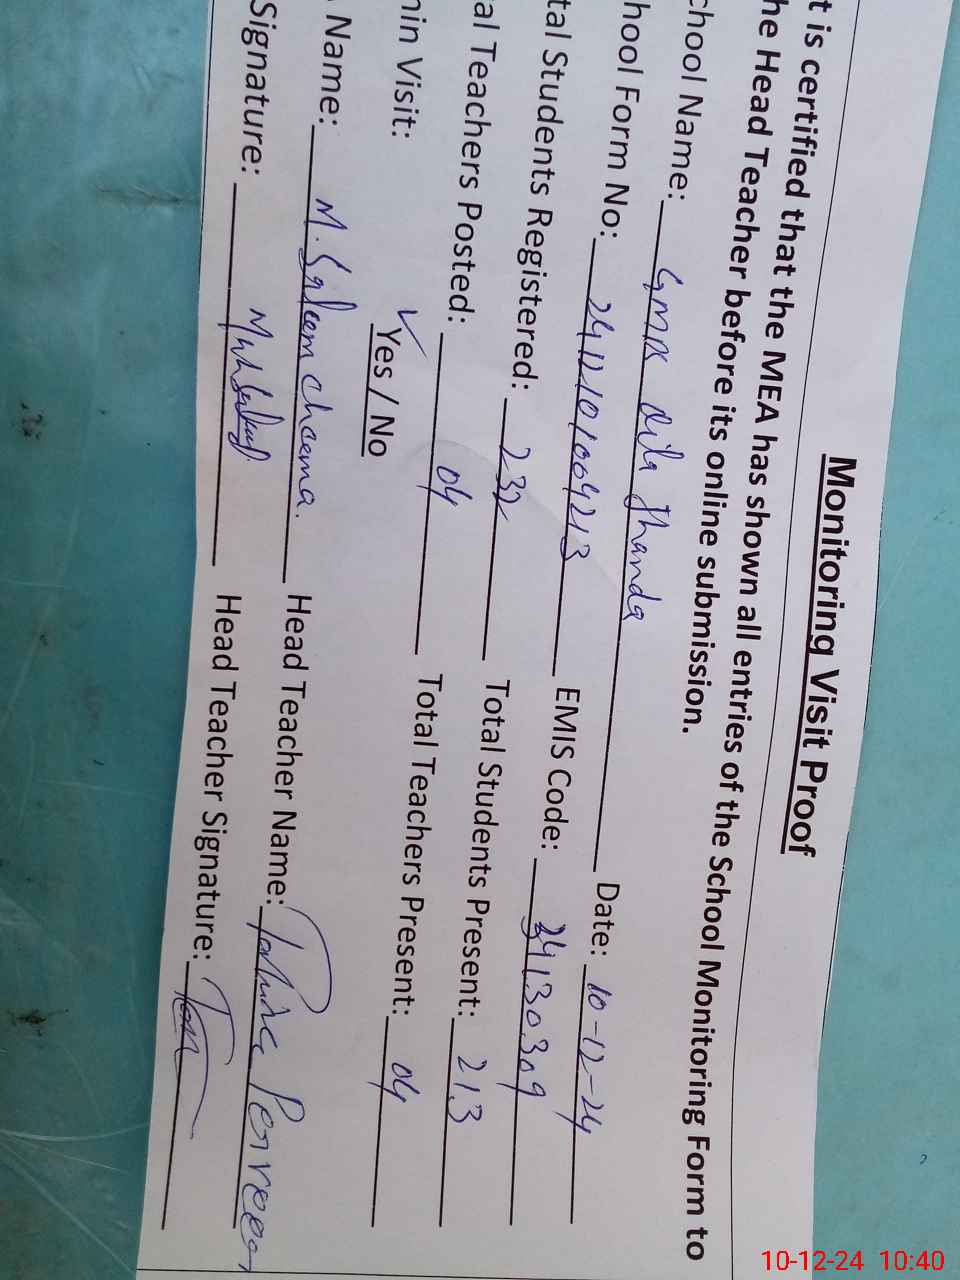 Monitoring Visit Proof
t is certified that the MEA has shown all entries of the School Monitoring Form to
he Head Teacher before its online submission.
chool Name: GMPS Qila Jhanda Date: 10-12-24
hool Form No: 2412101004213 EMIS Code: 34130309
tal Students Registered: 232 Total Students Present: 213
al Teachers Posted: 04 Total Teachers Present: 04
min Visit: ✓Yes / No
Name: M. Saleem cheema. Head Teacher Name: Tahira Perveen
Signature: Head Teacher Signature:
10-12-24 10:40